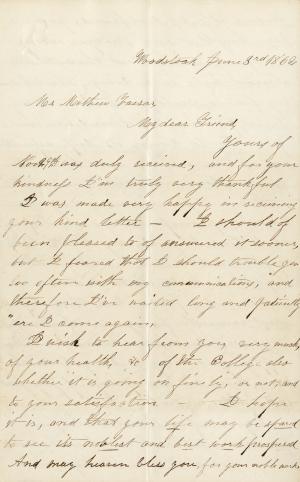 Woodstock June 3rd 1862
Mr Mathew Vassar
My dear Friend
Yours of
was duly received, and for your
kindness I'm truly very thankful
I was made very happy in receiving
your kind letter — I should of
been pleased to of answered it sooner,
but I feared that I should trouble you
too often with my communications, and
therefore I've waited long and patiently
"ere I come again.
I wish to hear from you very much,
of your health, &c of the College also
whether it is going on finely, or not and
to your satisfaction — I hope
it is, and that your life may be spared
to see its noblest and best work prospered
And may heaven bless you, for your noble works